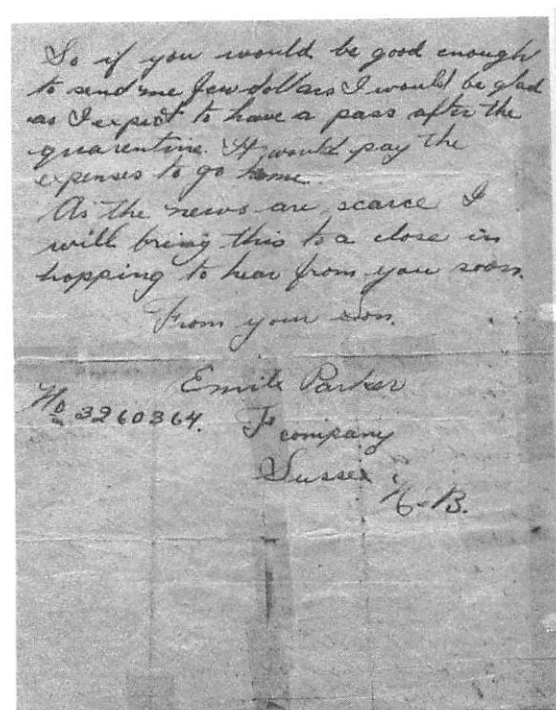 So if you would be good enough
to send me few dollars I would be glad
as I expect to have a pass after the
quarentine. It would pay the
expenses to go home.
As the news are scarce I
will bring this to a close in
hopping to hear from you soon.
From your Son.
Emile Parker
No 3260364.
F company
Sussex,
N-B.